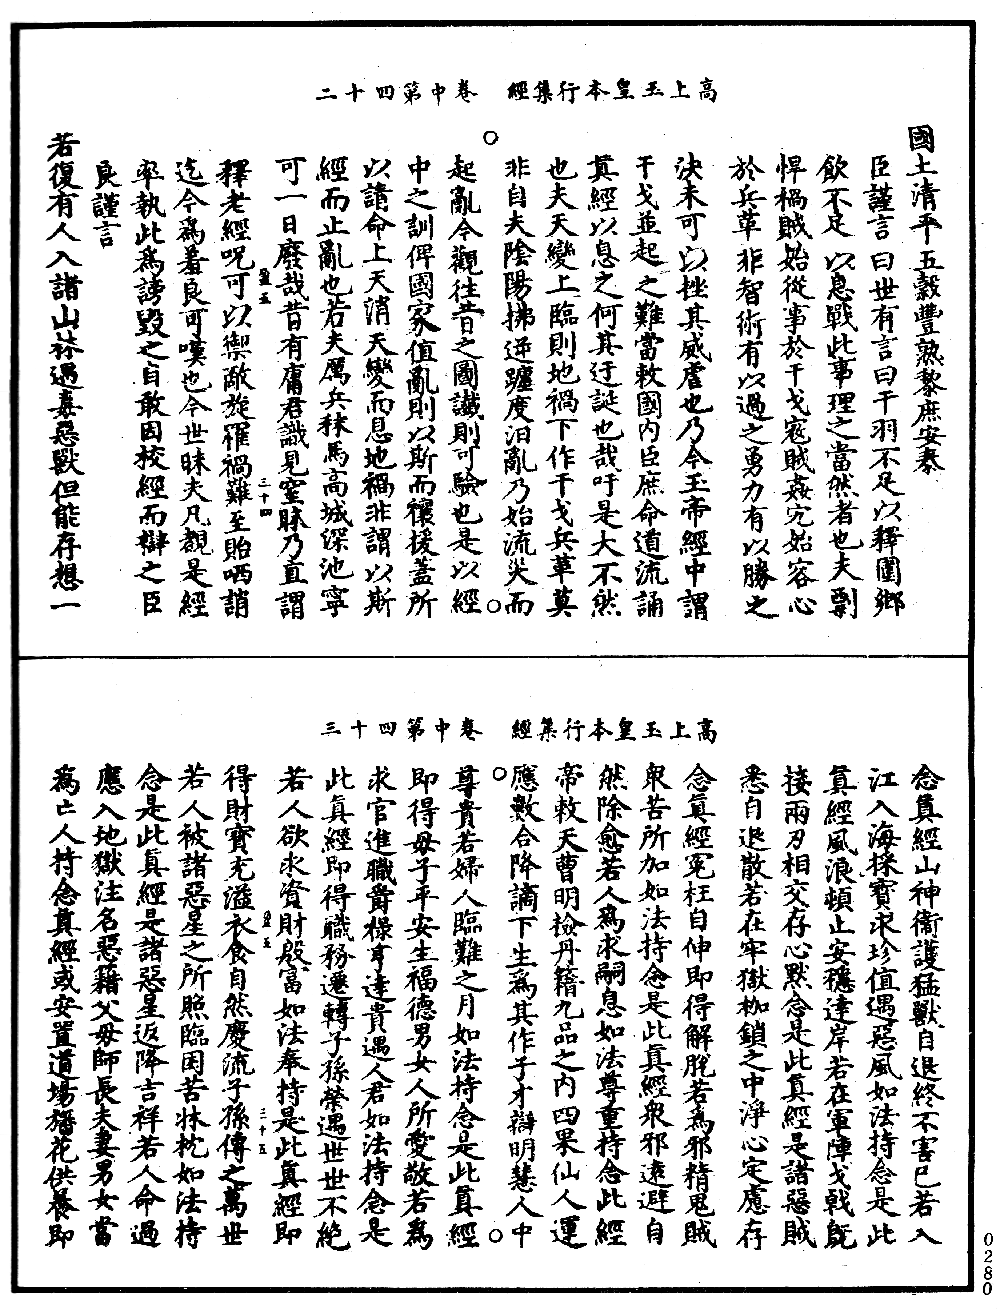 高上玉皇本行集經　卷中第四十二
國土清平五穀豐熟黎庶安泰
臣謹言曰世有言曰干羽不足以釋圍鄉
飲不足以息戰此事理之當然者也夫剽
悍禍賊始從事於干戈寇賊姦宄始容心
於兵革非智術有以過之勇力有以勝之
決未可以挫其威虐也乃今玉帝經中謂
干戈並起之難當敕國內臣庶命道流誦
真經以息之何其迂誕也哉吁是大不然
也夫天變上臨則地禍下作干戈兵革莫
非自夫陰陽拂逆躔度汩亂乃始流災而
起亂今觀往昔之圖讖則可驗也是以經
中之訓俾國家值亂則以斯而禳援蓋所
以請命上天消天變而息地禍非謂以斯
經而止亂也若夫厲兵秣馬高城深池寧
可一日廢哉昔有庸君識見窒昧乃直謂
釋老經呪可以禦敵旋罹禍難至貽哂誚
迄今為羞良可嘆也今世昧夫凡覩是經
率執此為謗毀之自敢因校經而辯之臣
良謹言
若復有人入諸山林遇毒惡獸但能存想一
高上玉皇本行集經　卷中第四十三
念真經山神衛護猛獸自退終不害己若入
江入海採寶求珍值遇惡風如法持念是此
真經風浪頓止安穩達岸若在軍陣戈戟既
接兩刃相交存心默念是此真經是諸惡賊
悉自退散若在牢獄枷鎖之中淨心定慮存
念真經冤枉自伸即得解脫若為邪精鬼賊
眾苦所加如法持念是此真經眾邪遠避自
然除愈若人為求嗣息如法尊重持念此經
帝敕天曹明檢丹籍九品之內四果仙人運
應數合降謫下生為其作子才辯明慧人中
尊貴若婦人臨難之月如法持念是此真經
即得母子平安生福德男女人所愛敬若為
求官進職爵祿亨達貴遇人君如法持念是
此真經即得職務遷轉子孫榮遇世世不絕
若人欲求資財殷富如法奉持是此真經即
得財寶充溢衣食自然慶流子孫傳之萬世
若人被諸惡星之所照臨困苦牀枕如法持
念是此真經是諸惡星返降吉祥若人命過
應入地獄注名惡籍父母師長夫妻男女當
為亡人持念真經或安置道場旛花供養即
三十四
三十五
0280